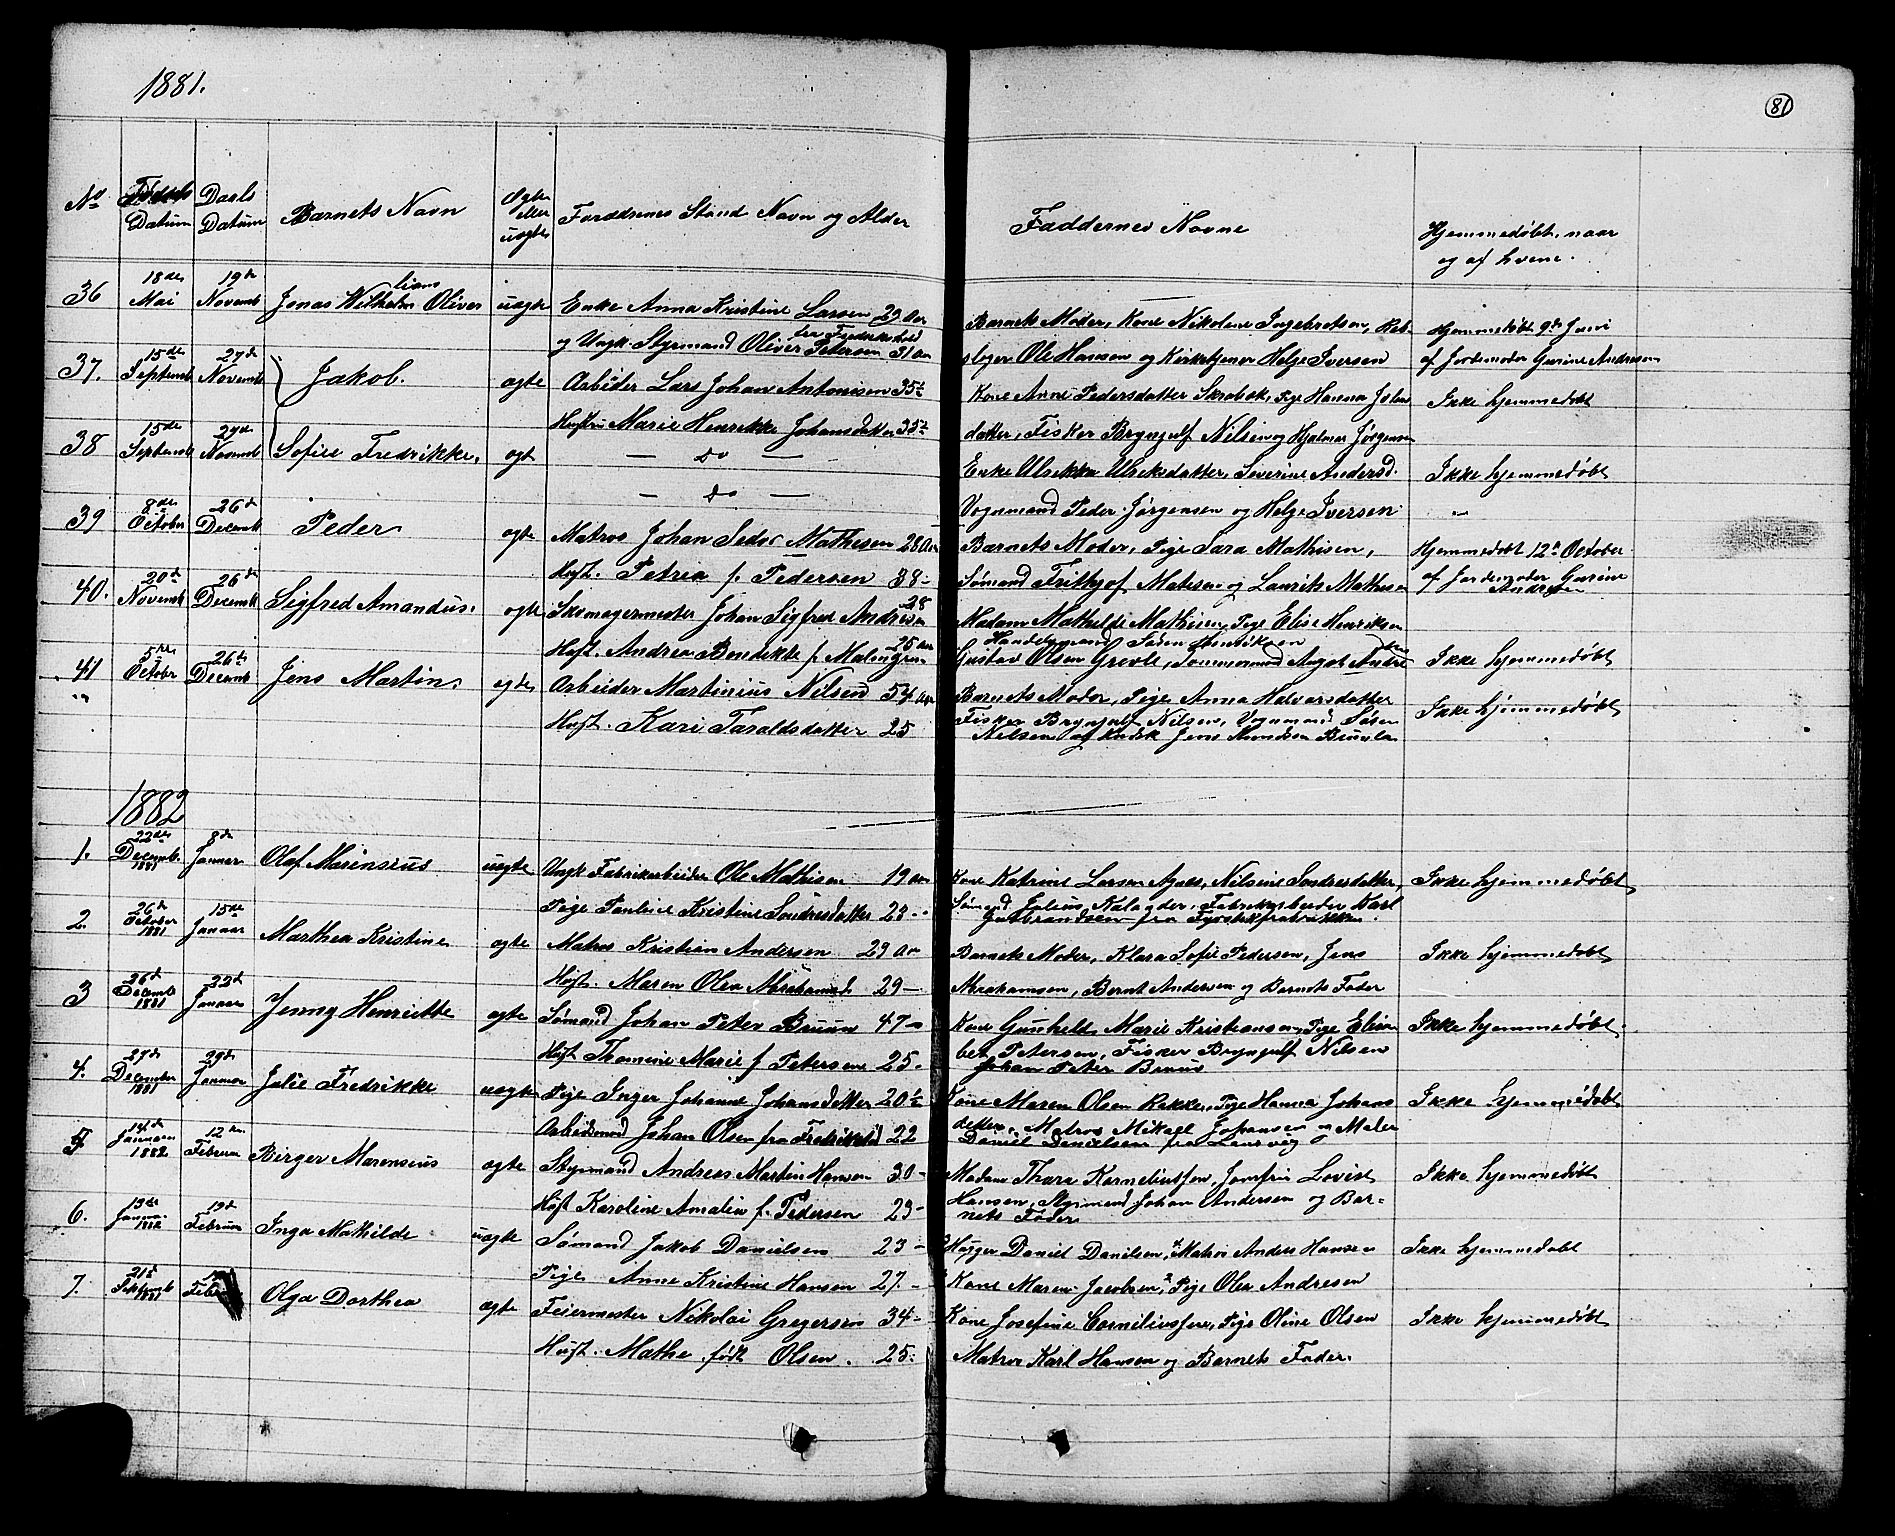 1881.
81
No Fødsels Datum Daabs Datum Barnets Navn Ægte eller uægte Forældrenes Stand Navn og Alder Faddernes Navne Hjemmedøbt, naar og af hvem.
36 18de Mai 19de Novemb Jonas Wilhelm Oliver uægte Enke Anna Kristine Larsen 29 Aar
og Ungk. Styrmand Oliver Petersen 31 Aar
Barnets Moder, Kone Nikoline Ingebretsen, Reb-
slager Ole Hansen og Kirketjener Helge Iversen
Hjemmedøbt 9de Juni
af Jordemoder Gurine Andresen
37. 15de Septemb 27de Novemb Jakob. ægte Arbeider Lars Johan Antonisen 35½
Hustru Marie Henrikke Johansdatter 35½
Kone Anne Pedersdatter Skrabek, Pige Hanna Johns
datter, Fisker Bryngulf Nilsen og Hjalmar Jørgensen
Ikke hjemmedøbt
38 15de Septemb 27de Novemb Sofie Fredrikke. ægt — do —
— do —
Enke Ulrikka Ulriksdatter, Severine Andersd.
Vognmand Peder Jørgensen og Helge Iversen
Ikke hjemmedøbt
39 8de October 26de Decemb Peder ægte Matros Johan Mathisen 28 Aar
Hust. Petria f. Pedersen 38 -
Barnets Moder, Pige Sara Mathisen,
Sømand Frithjof Matisen og Laurits Mathisen
Hjemmedøbt 12te October
af Jordemoder Gurine
Andresen
40. 20de Novemb 26de Decemb Sigfred Amandus. ægte Skomagermester Johan Sigfred Andresen 28
Hust. Andrea Bendikte f. Malmgren 26 Aar
Madam Mathilde Mathisen, Pige Elise Henriksen
Handelsmand Søren Henriksen
Gustav Olsen Grevle, Tømmermand August Andre
Ikke hjemmedøbt
41 5te October 26de Decemb Jens Martin. ægte Arbeider Martinius Nilsen 54 Aar
Hust. Kari Taraldsdatter 25
Barnets Moder, Pige Anna Halvorsdatter
Fisker Bryngulf Nilsen, Vognmand Søren
Nilsen og Jens Brunla
Ikke hjemmedøbt
1882
1. 22de Decemb. 1881 8de Januar Olaf Marensius uægte Ungk. Fabrikarbeider Ole Mathisen 19 Aar
Pige Pauline Kristine Sondresdatter 23 -
Kone Katrine Larsen Agnes, Nilsine Sondresdatter,
Sømand Julius, Fabriksarbeider Karl
Gulbrandsen fra Fyrstikfabrikken.
Ikke hjemmedøbt
2. 26de October 1881 15de Januar Marthea Kristine ægte Matros Kristian Andersen 29 Aar
Hust. Maren Olea Abrahamsd. 29 -
Barnets Moder, Klara Sofie Pedersen, Jens
Abrahamsen, Bernt Andersen og Barnets Fader
Ikke hjemmedøbt
3 26de Decemb 1881 22de Januar Jenny Henriette ægte Sømand Johan Peter Bruun 47 -
Hust Thomine Marie f Petersen 25 -
Kone Gunhild Marie Kristiansen, Pige Elisa-
bet Petersen, Fisker Bryngulf Nilsen
Johan Peter Bruun
Ikke hjemmedøbt
4. 27de December 1881 29de Januar Julie Fredrikke uægte Pige Inger Johanne Johansdatter 20½
Arbeidsmand Johan Olsen fra Fredrikstad 22
Kone Maren Olsen Rakke, Pige Hanna Johans
datter, Matros Mikael Johansen og Maler
Daniel Danielsen fra Laurvig
Ikke hjemmedøbt
5 14de Januar 1882 12te Februar Birger Marensius ægte Styrmand Andreas Martin Hansen 30 -
Hust Karoline Amalia f. Pedersen 23 -
Madam Thora Korneliussen, Jomfru Lovise
Hansen, Styrmand Johan Andersen og Bar-
nets Fader
Ikke hjemmedøbt
6. 13de Januar 1882 19de Februar Inga Mathilde uægte Sømand Jakob Danielsen 23 -
Pige Anne Kristine Hansen 27. -
Daniel Danilsen, Matros Anders Hansen
Kone Maren Jacobsen, Pige Olea Andresen
Ikke hjemmedøbt
7. 21de Septemb 1881 Februar Olga Dorthea ægte Feiermester Nikolai Gregersen 34 -
Hust. Mathe født Olsen. 25.
Kone Josefine Corneliussen, Pige Oline Olsen
Matros Karl Hansen og Barnets Fader.
Ikke hjemmedøbt